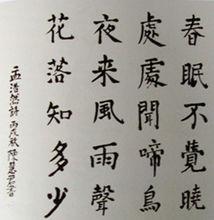 春眠不覺曉
處處聞啼鳥
夜来風雨聲
花落知多少
孟浩然詩 丙戌秋